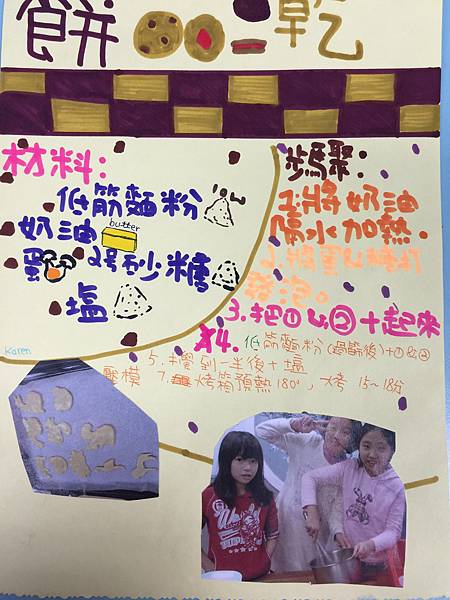 餅乾
材料:
低筋麵粉
奶油 butter
蛋 2号砂糖
塩
Karen
步驟:
1.將奶油
隔水加熱.
2.將蛋&糖打
發泡。
3.把①&②+起來
4.低筋麵粉(過篩後)+①&②
5.攪到一半後+塩
壓模 7.烤箱預熱180°,烤15~18分